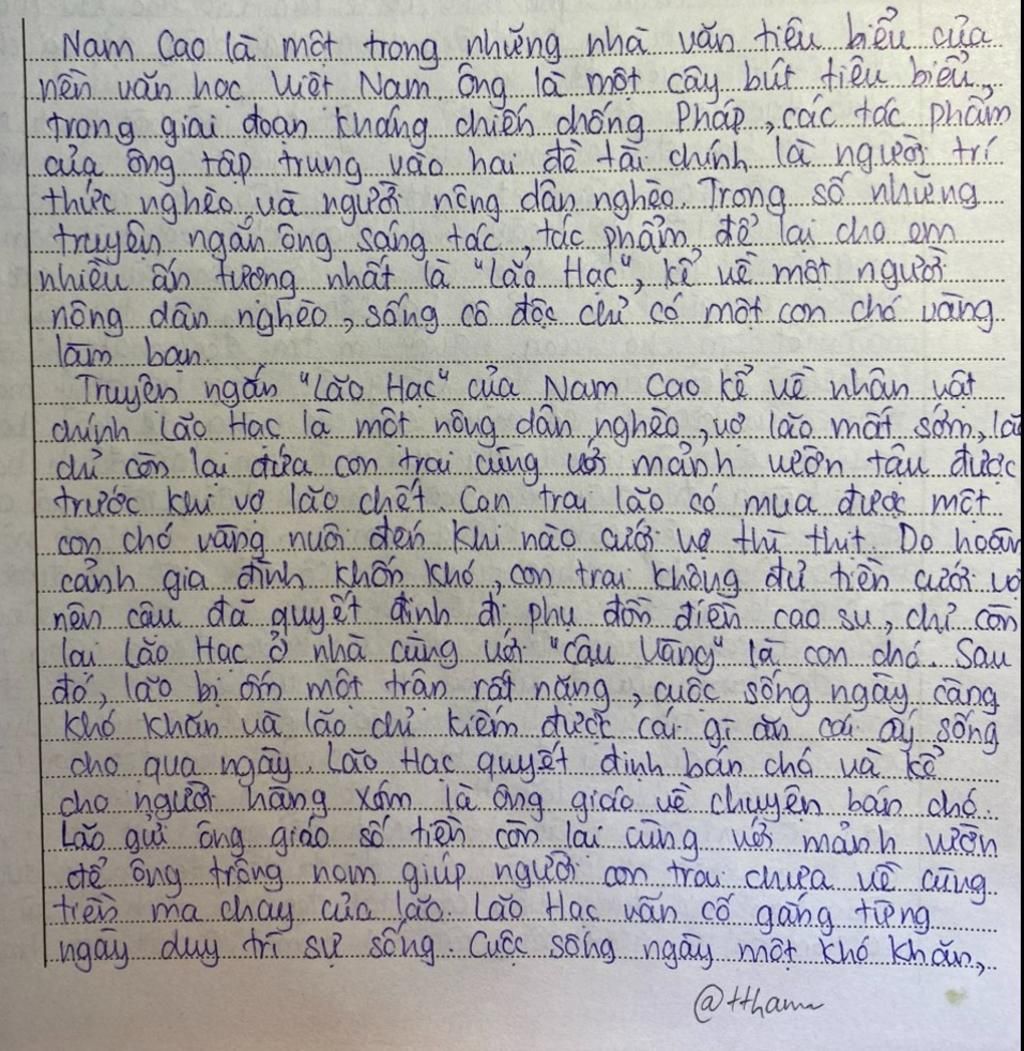 Nam Cao là một trong những nhà văn tiêu biểu của
nền văn học Việt Nam. Ông là một cây bút tiêu biểu
trong giai đoạn kháng chiến chống Pháp, các tác phẩm
của ông tập trung vào hai đề tài chính là người trí
thức nghèo và người nông dân nghèo. Trong số những
truyện ngắn ông sáng tác, tác phẩm để lại cho em
nhiều ấn tượng nhất là "Lão Hạc", kể về một người
nông dân nghèo, sống cô độc chỉ có một con chó vàng
làm bạn.
Truyện ngắn "Lão Hạc" của Nam Cao kể về nhân vật
chính Lão Hạc là một nông dân nghèo, vợ lão mất sớm, lã
chỉ còn lại đứa con trai cùng với mảnh vườn tậu được
trước khi vợ lão chết. Con trai lão có mua được một
con chó vàng nuôi đến khi nào cưới vợ thì thịt. Do hoàn
cảnh gia đình khốn khó, con trai không đủ tiền cưới vợ
nên cậu đã quyết định đi phụ đồn điền cao su, chỉ còn
lại Lão Hạc ở nhà cùng với "cậu Vàng" là con chó. Sau
đó, lão bị ốm một trận rất nặng, cuộc sống ngày càng
khó khăn và lão chỉ kiếm được cái gì ăn cái ấy sống
cho qua ngày. Lão Hạc quyết định bán chó và kể
cho người hàng xóm là ông giáo về chuyện bán chó.
Lão gửi ông giáo số tiền còn lại cùng với mảnh vườn
để ông trông nom giúp người con trai chưa về cùng
tiền ma chay của lão. Lão Hạc vẫn cố gắng từng
ngày duy trì sự sống. Cuộc sống ngày một khó khăn,